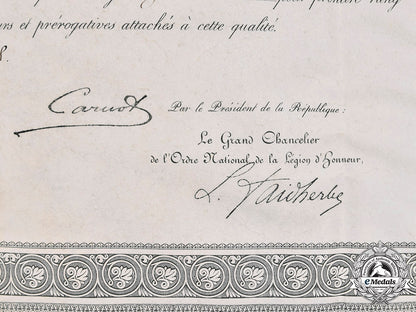 pour premier rang
urs et prérogatives attachés à cette qualité.
Carnot
Par le Président de la République:
Le Grand Chancelier
de l'Ordre National de la Légion d'Honneur,
L. Faidherbe
eMedals